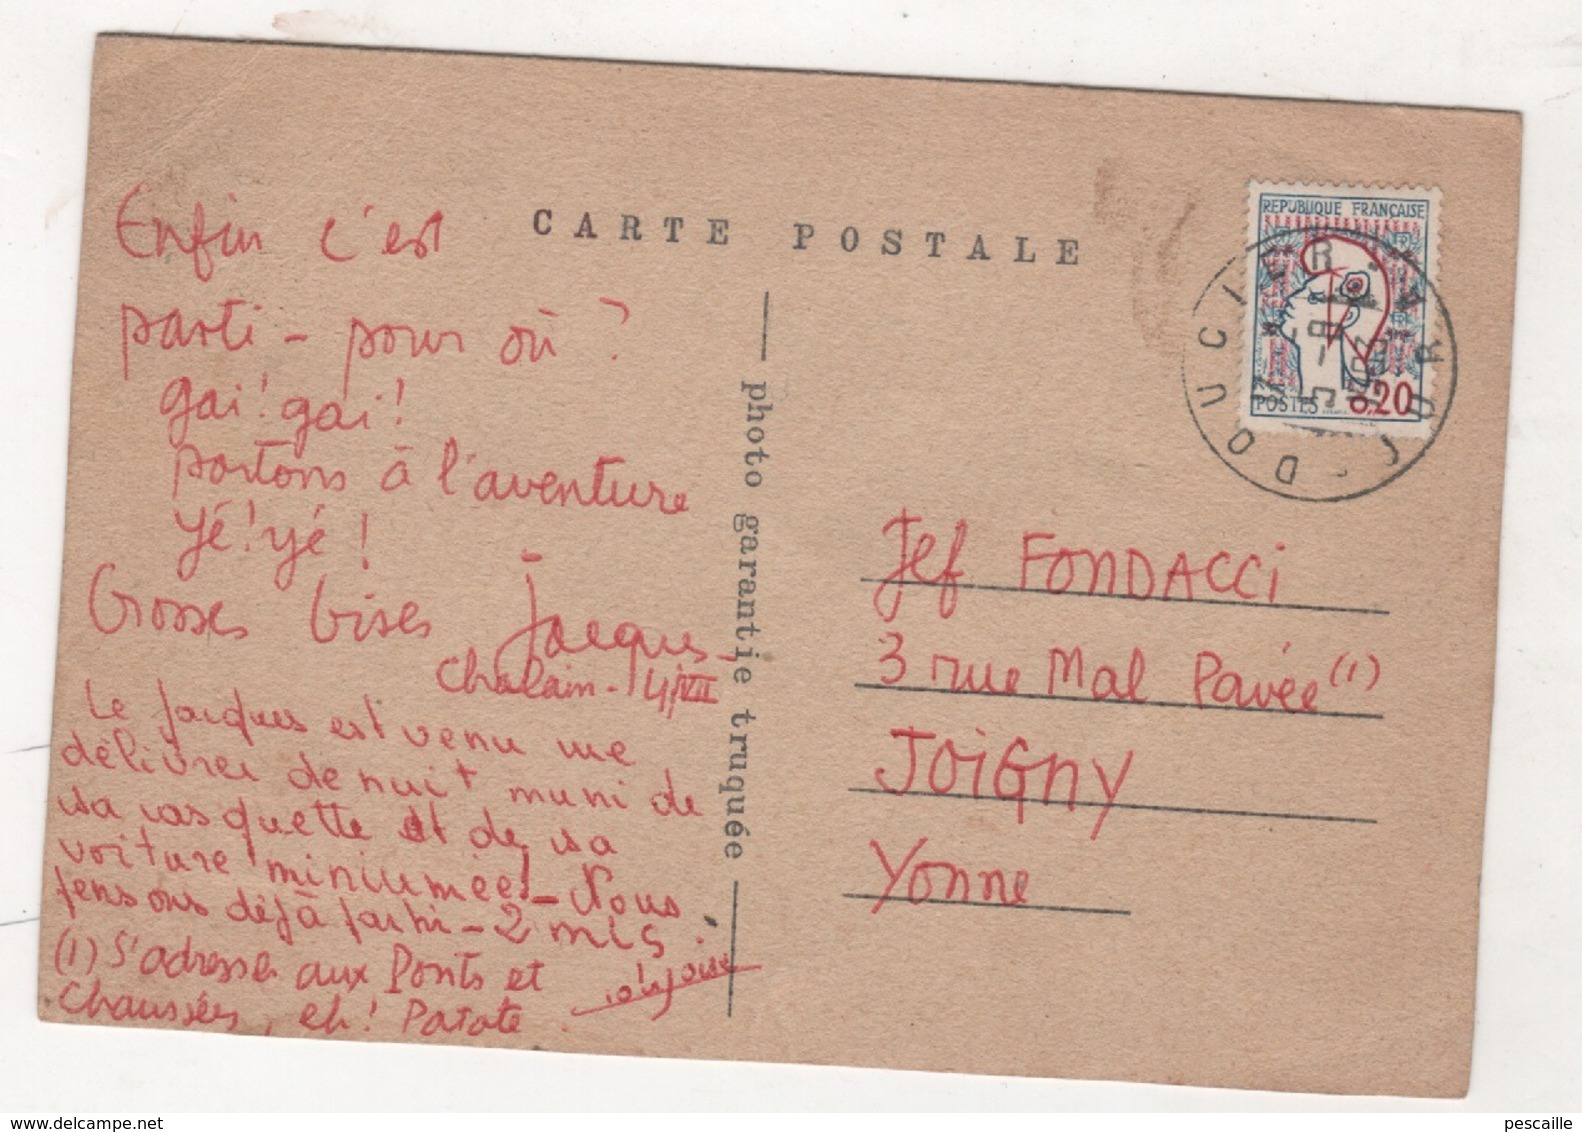 CARTE POSTALE
Enfin c'est
parti - pour où ?
gai! gai!
partons à l'aventure
yé! yé!
Grosses bises Jacques
Chalain - 4/VII
Le Jacques est venu me
délivrer de nuit muni de
sa casquette et de sa
voiture miniumée! - Nous
pensons déjà partir - 2
(1) S'adresser aux Ponts et
Chaussées, eh! Patate.
photo garantie truquée
REPUBLIQUE FRANÇAISE
POSTES 0,20
DOUCIER
JURA
Jef FONDACCI
3 rue Mal Pavée (1)
JOIGNY
Yonne
pescaille